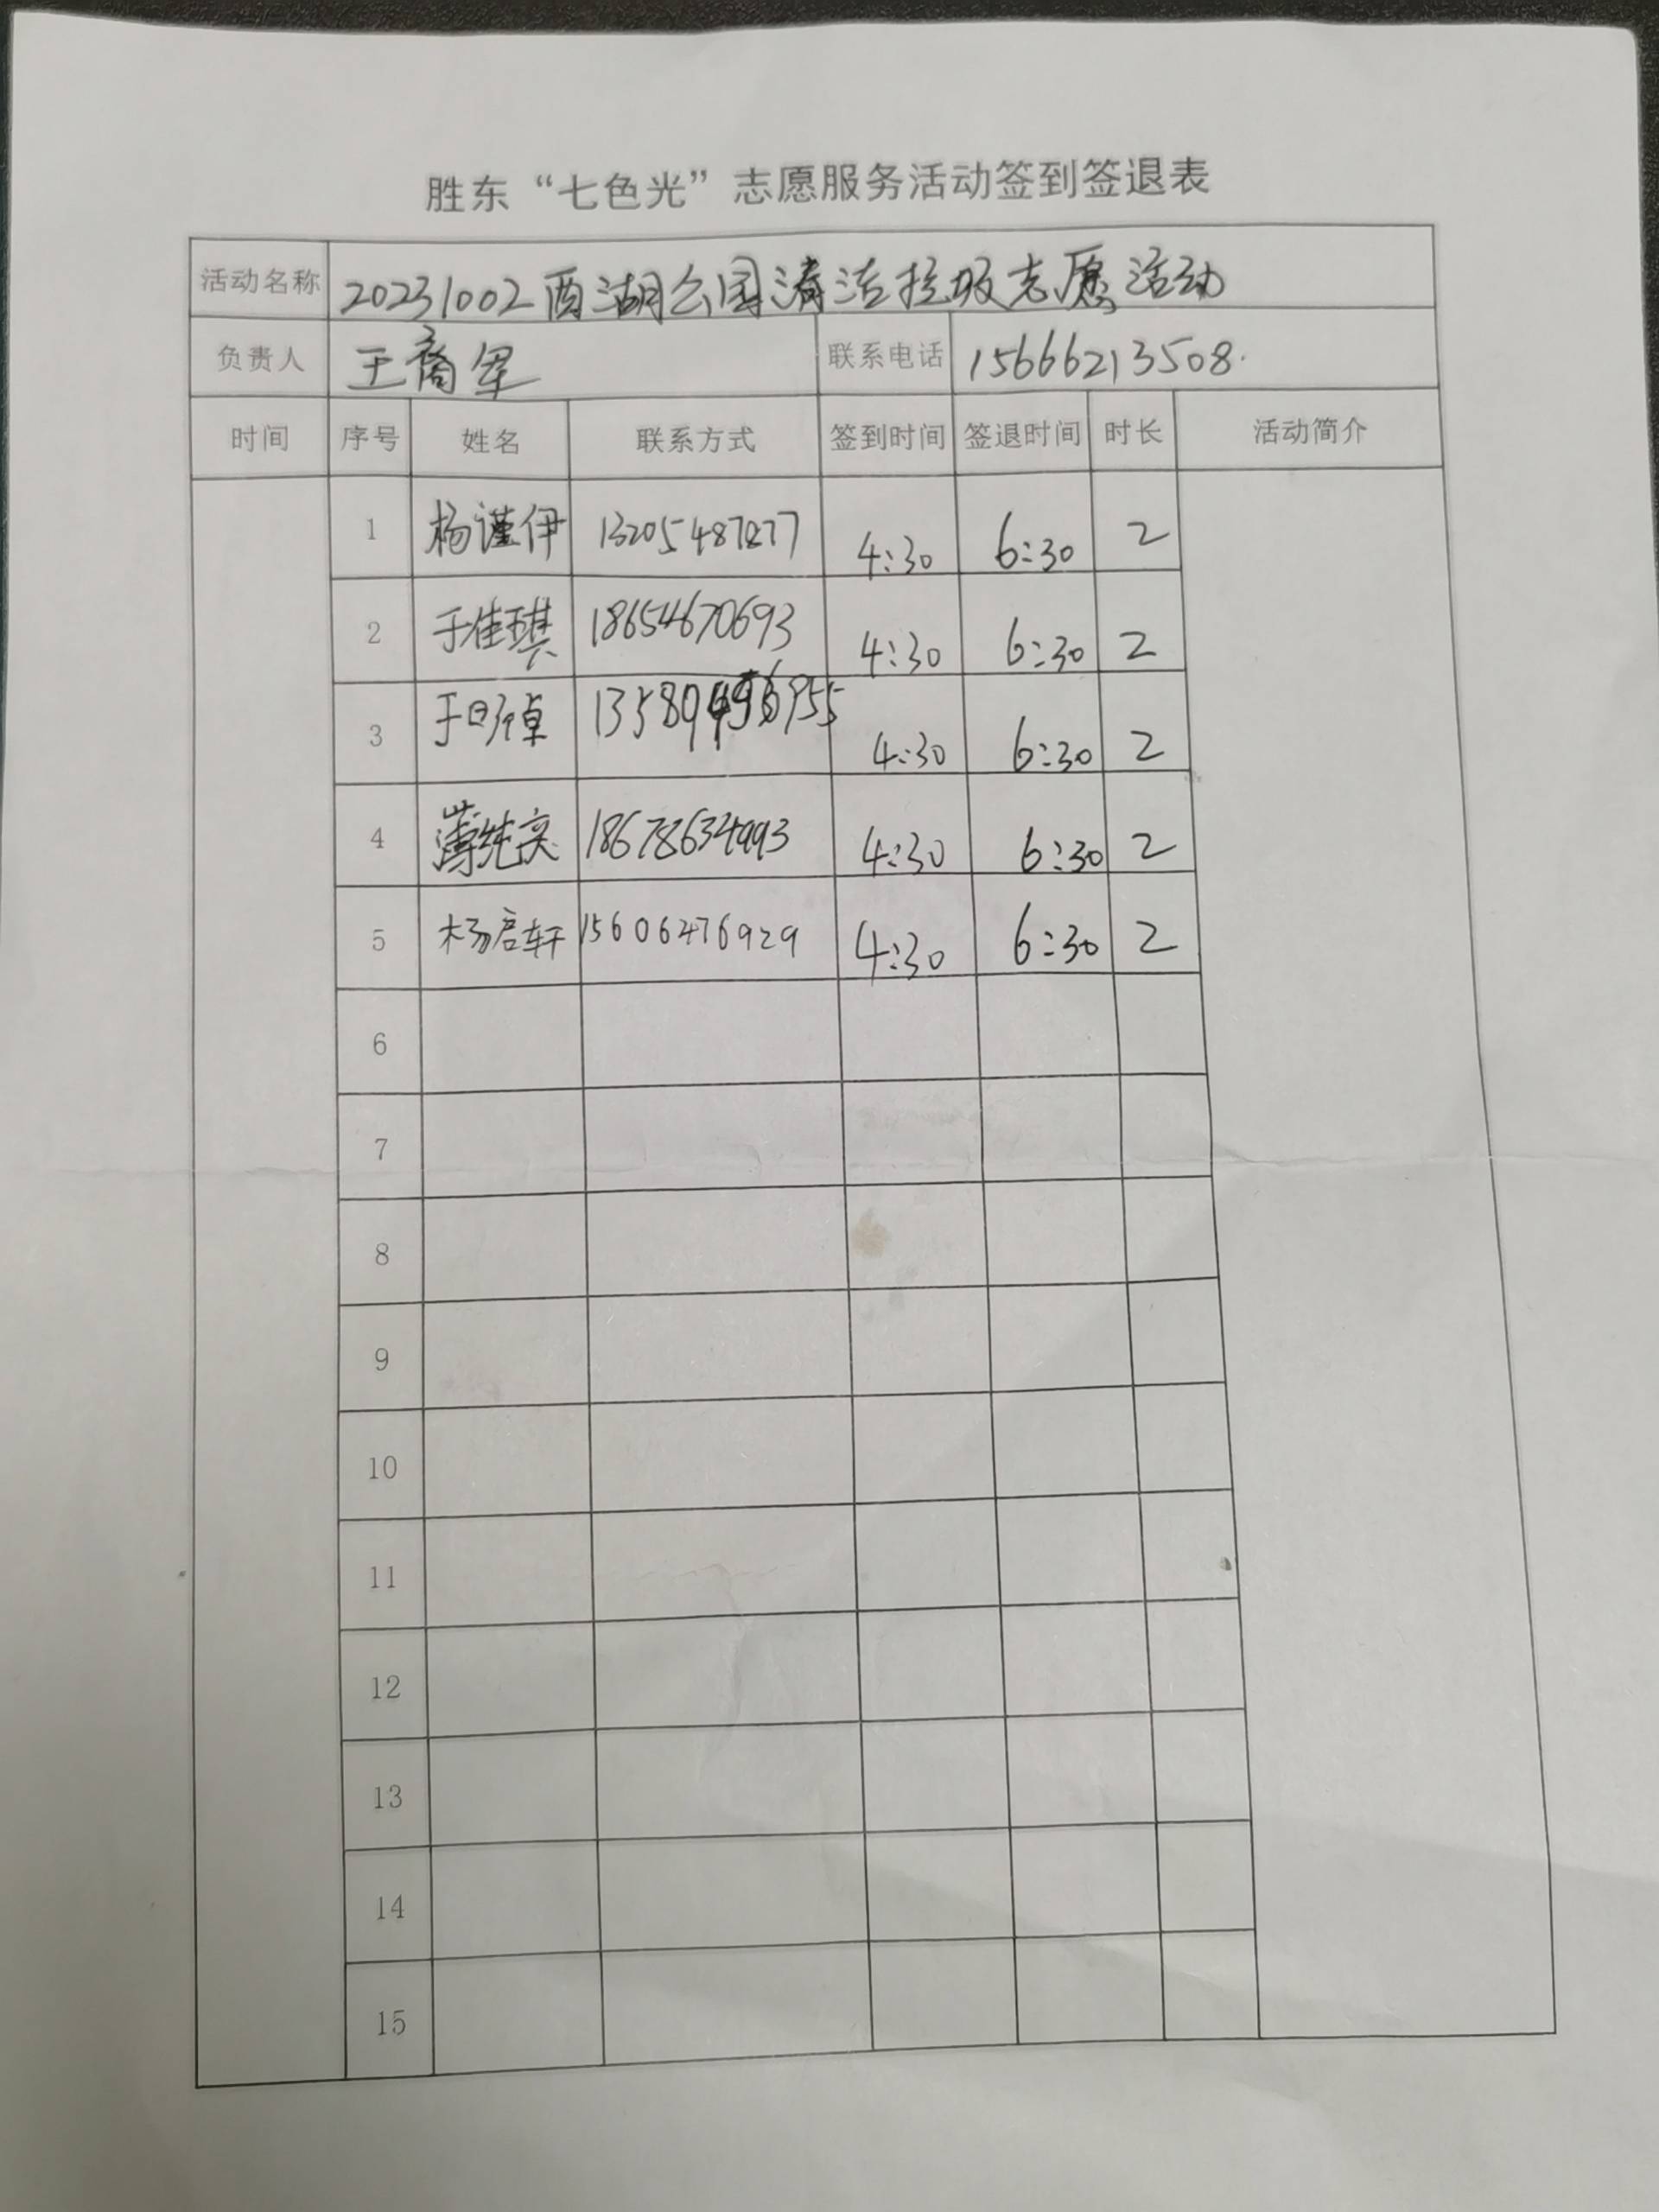 胜东“七色光”志愿服务活动签到签退表
活动名称 20231002西湖公园清洁垃圾志愿活动
负责人 王裔军 联系电话 15666213508.
时间 序号 姓名 联系方式 签到时间 签退时间 时长 活动简介
1 杨谨伊 13205487277 4:30 6:30 2
2 于佳琪 18654670693 4:30 6:30 2
3 4:30 6:30 2
4 薄纯奕 18678634993 4:30 6:30 2
5 杨启轩 15606476929 4:30 6:30 2
6
7
8
9
10
11
12
13
14
15